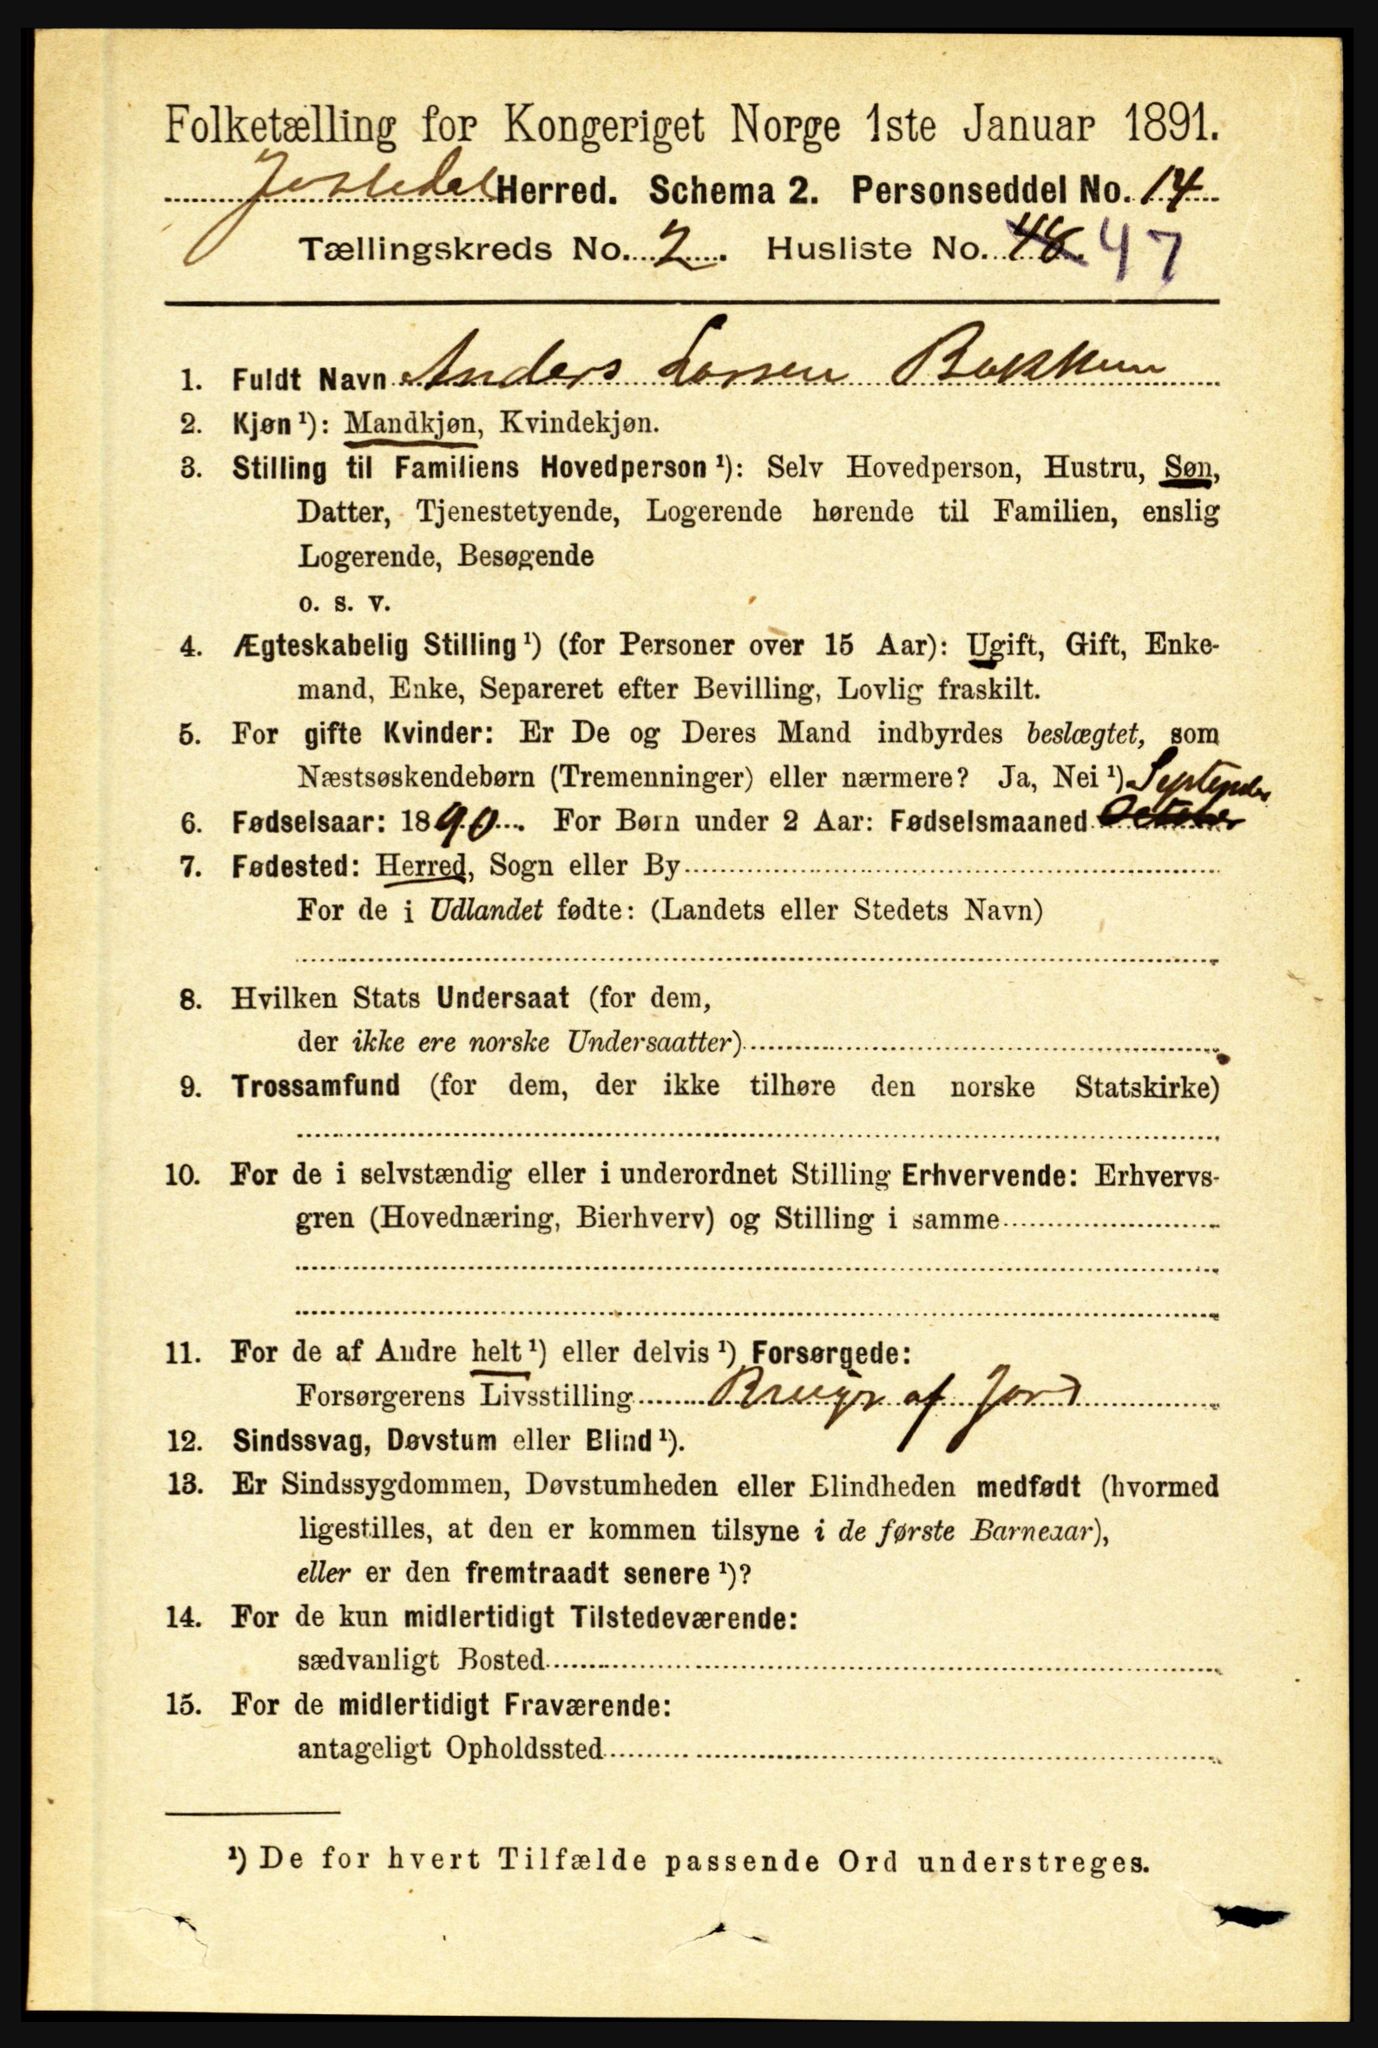 Folketælling for Kongeriget Norge 1ste Januar 1891.
Jostedal Herred. Schema 2. Personseddel No. 14
Tællingskreds No. 2. Husliste No. 48. 47
1. Fuldt Navn Anders Larsen Bakken
2. Kjøn ¹): Mandkjøn, Kvindekjøn.
3. Stilling til Familiens Hovedperson ¹): Selv Hovedperson, Hustru, Søn,
Datter, Tjenestetyende, Logerende hørende til Familien, enslig
Logerende, Besøgende
o. s. v.
4. Ægteskabelig Stilling ¹) (for Personer over 15 Aar): Ugift, Gift, Enke-
mand, Enke, Separeret efter Bevilling, Lovlig fraskilt.
5. For gifte Kvinder: Er De og Deres Mand indbyrdes beslægtet, som
Næstsøskendebørn (Tremenninger) eller nærmere? Ja, Nei ¹) September
6. Fødselsaar: 1890. For Børn under 2 Aar: Fødselsmaaned October
7. Fødested: Herred, Sogn eller By
For de i Udlandet fødte: (Landets eller Stedets Navn)
8. Hvilken Stats Undersaat (for dem,
der ikke ere norske Undersaatter)
9. Trossamfund (for dem, der ikke tilhøre den norske Statskirke)
10. For de i selvstændig eller i underordnet Stilling Erhvervende: Erhvervs-
gren (Hovednæring, Bierhverv) og Stilling i samme
11. For de af Andre helt ¹) eller delvis ¹) Forsørgede:
Forsørgerens Livsstilling Bruger af Jord
12. Sindssvag, Døvstum eller Blind ¹).
13. Er Sindssygdommen, Døvstumheden eller Blindheden medfødt (hvormed
ligestilles, at den er kommen tilsyne i de første Barneaar),
eller er den fremtraadt senere ¹)?
14. For de kun midlertidigt Tilstedeværende:
sædvanligt Bosted
15. For de midlertidigt Fraværende:
antageligt Opholdssted
¹) De for hvert Tilfælde passende Ord understreges.